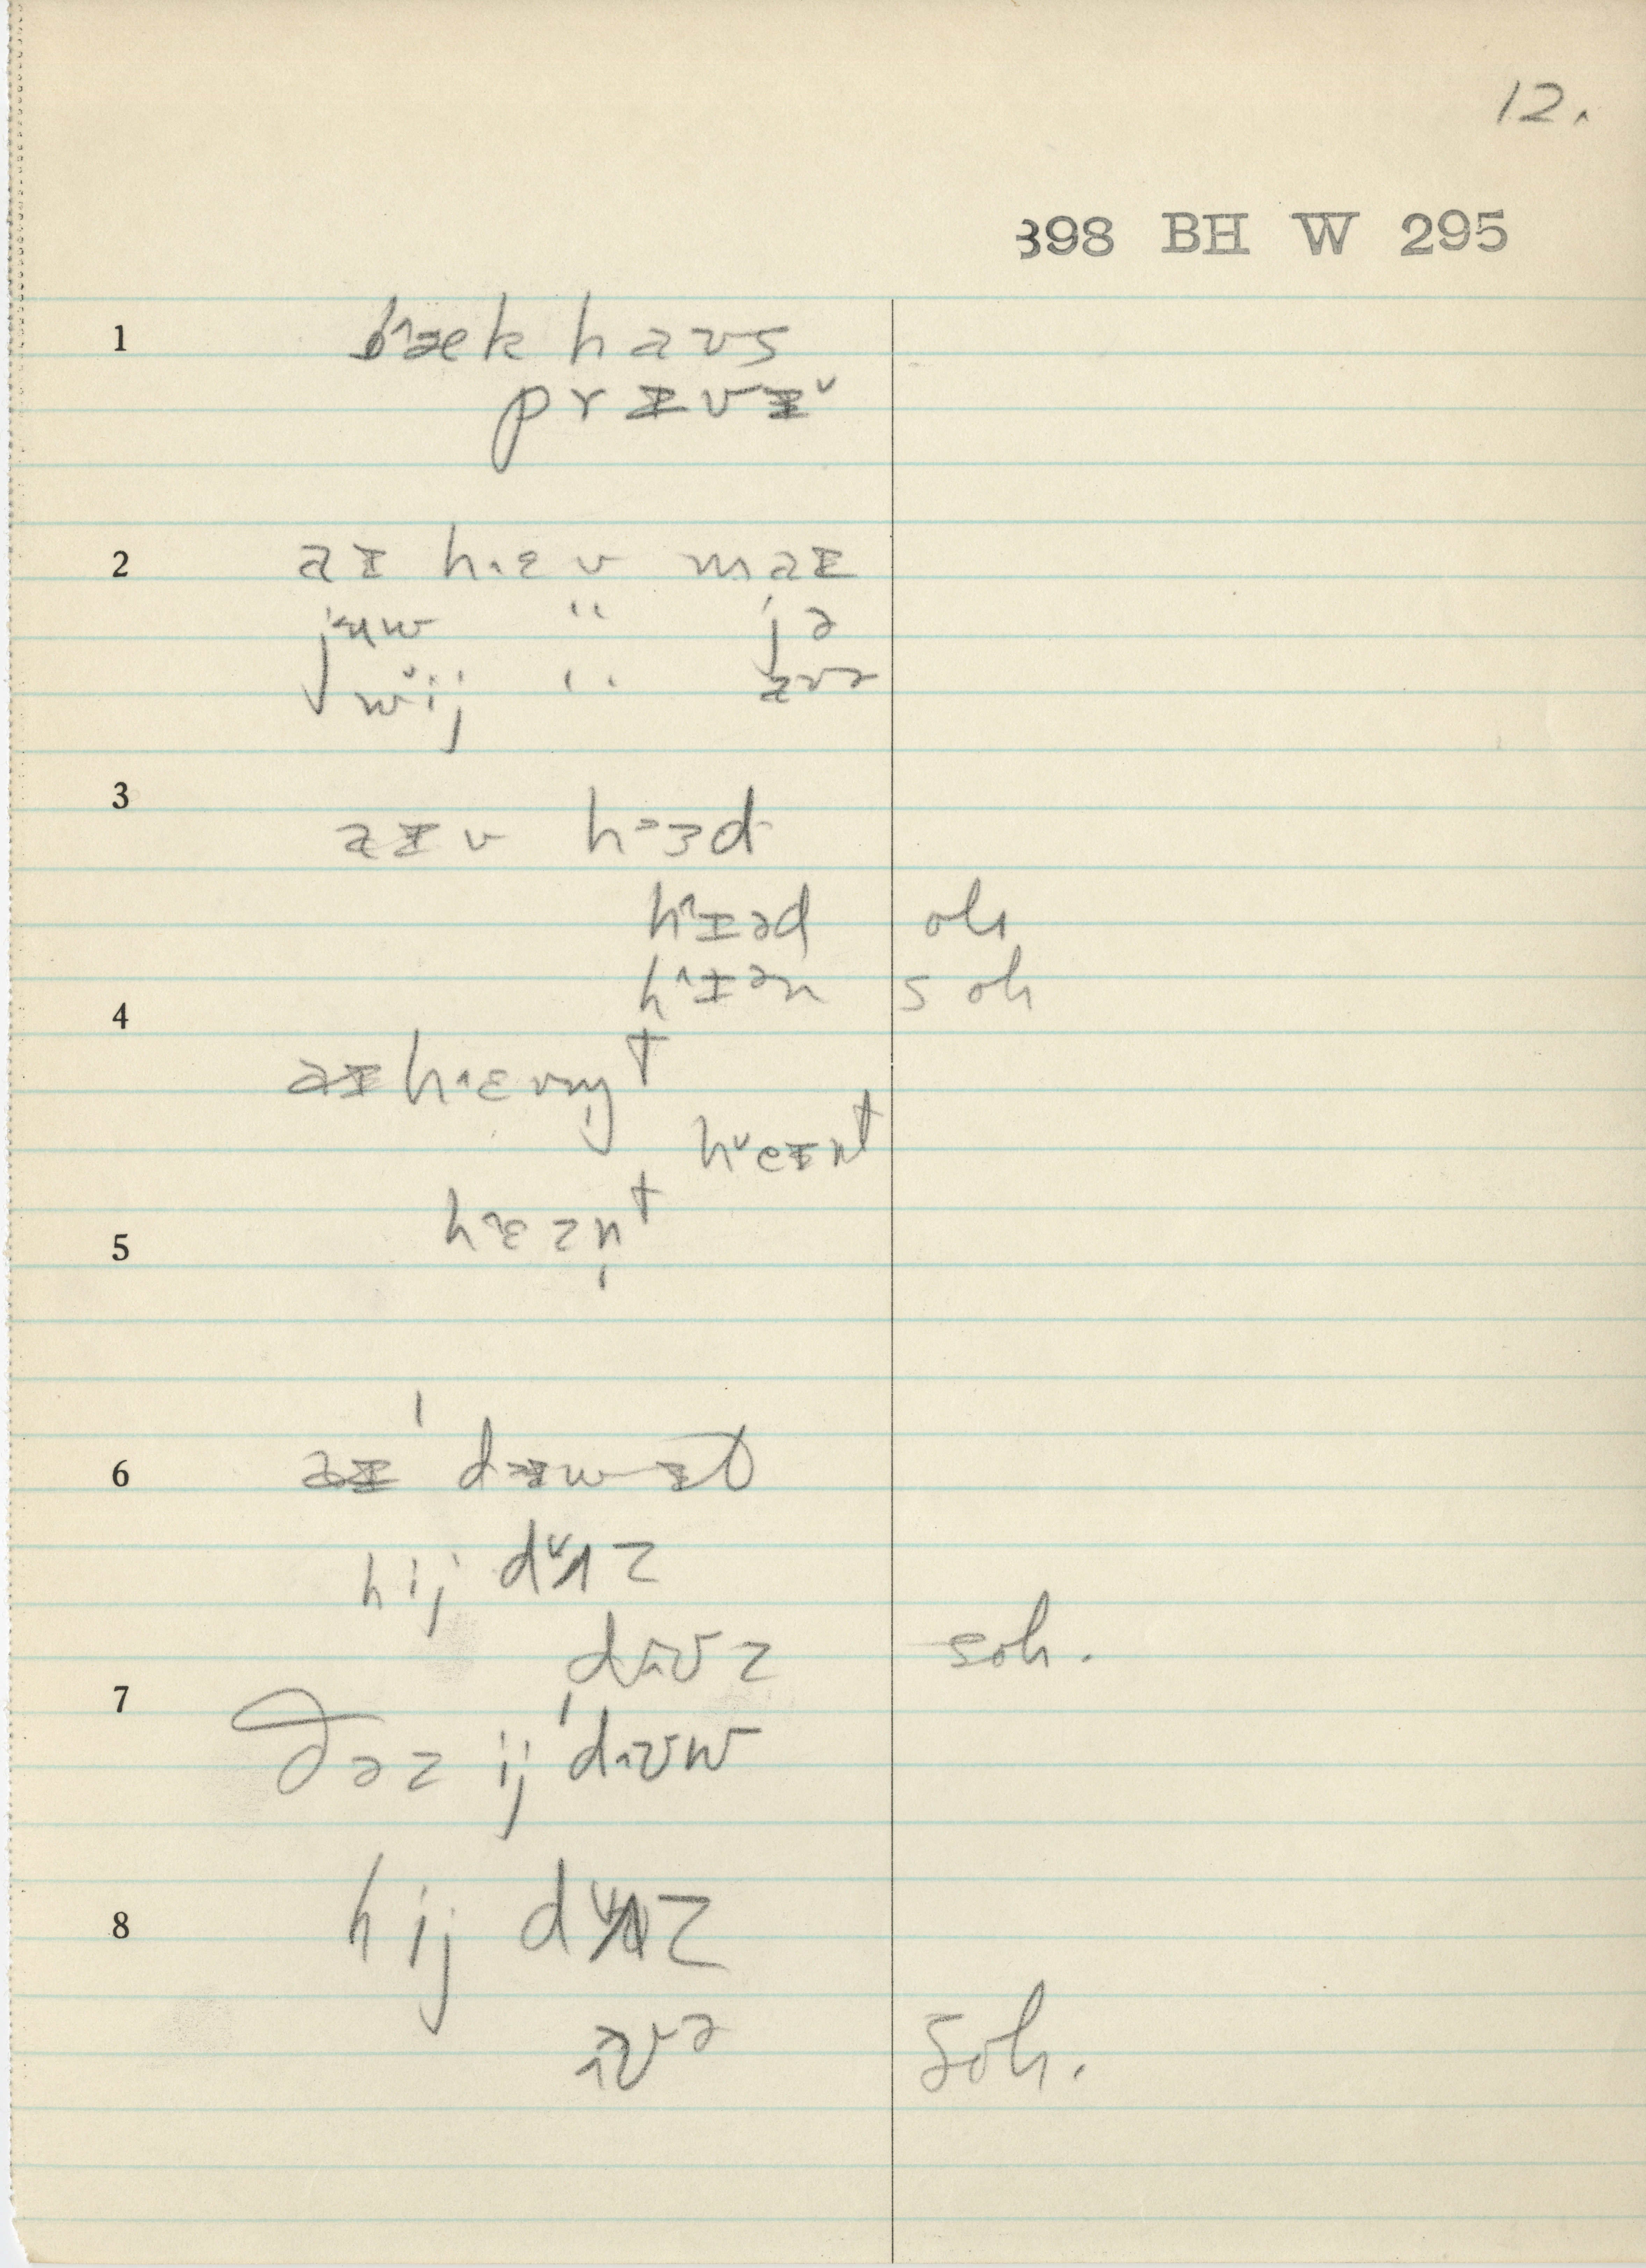 12.
398 BH W 295
1 b˄æk haʊs
prɪvɪ˅
2 aɪ h˄ɛv maɪ
j˂ʉw " jə
w˅ij " aʊə
3 aɪv h˃ɜd
h˄ɪəd oh
h˄ɪən s oh
4 aɪ h˄ɛvn̩t
h˅eɪnt
5 h˄ɛzn̩t
6 aɪ d wɪt
hij d˅ʌz
dʊz soh.
7 ðəz ij dʊw
8 hij d˅ʌz
ʊə soh.